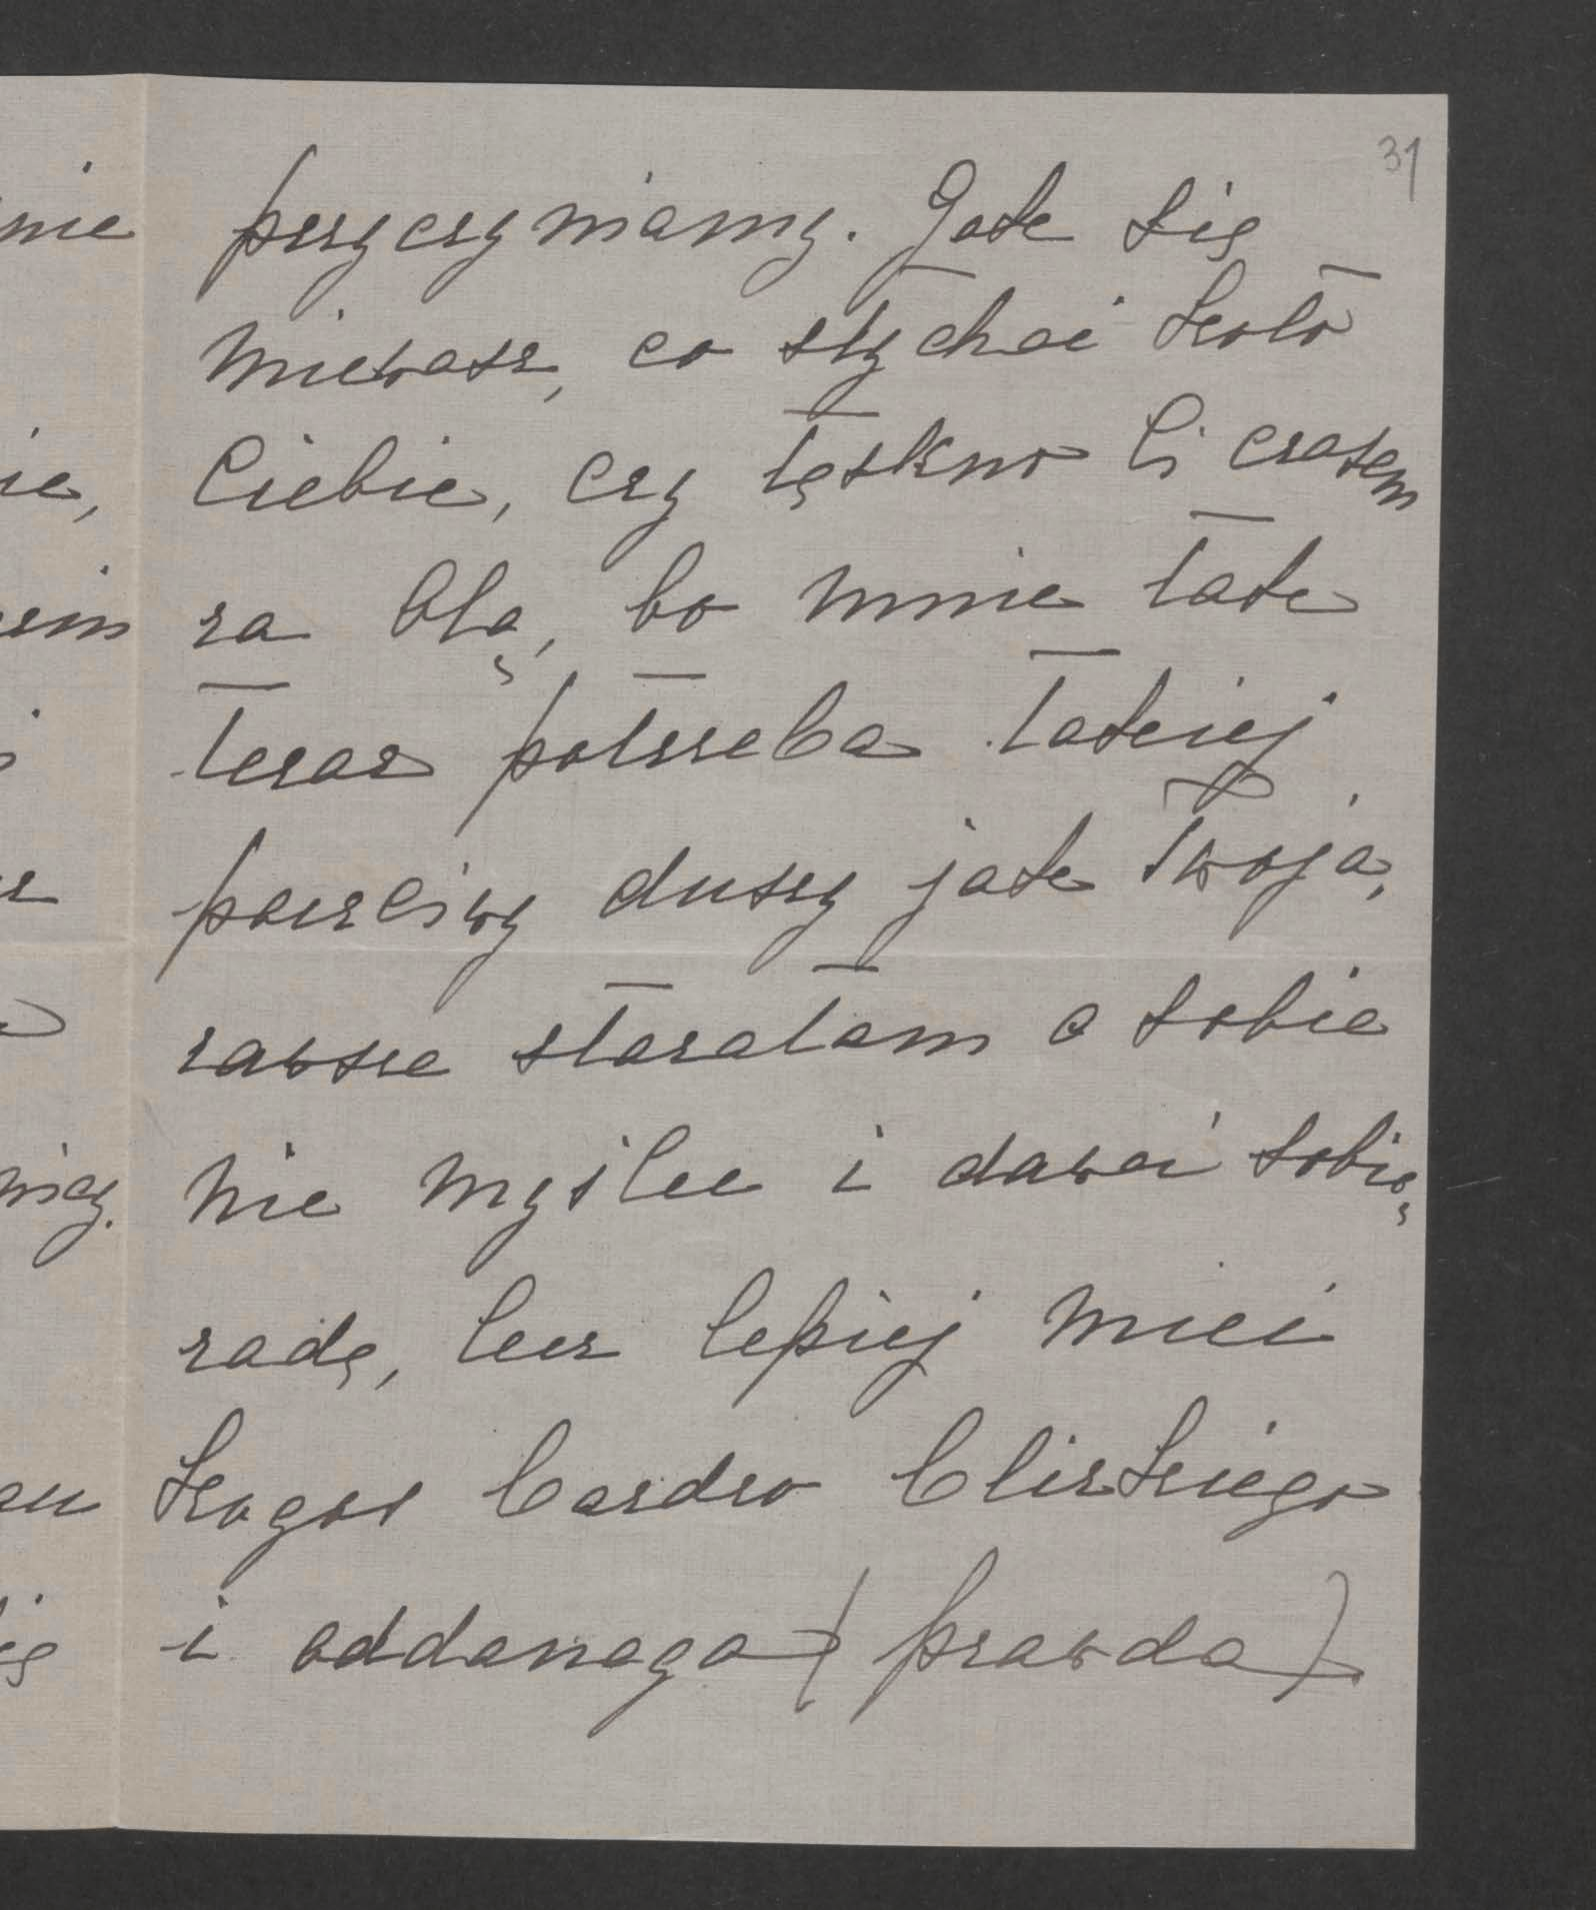 31
przyczyniamy. Jak się
miewasz, co słychać koło
Ciebie, czy tęskno Ci czasem
za Olą, bo mnie tak
teraz potrzeba takiej
poczciwy duszy jak Twoja,
zawsze starałam o sobie
nie myśleć i dawać sobie
radę, lecz lepiej mieć
kogoś bardzo bliskiego
i oddanego (prawda)